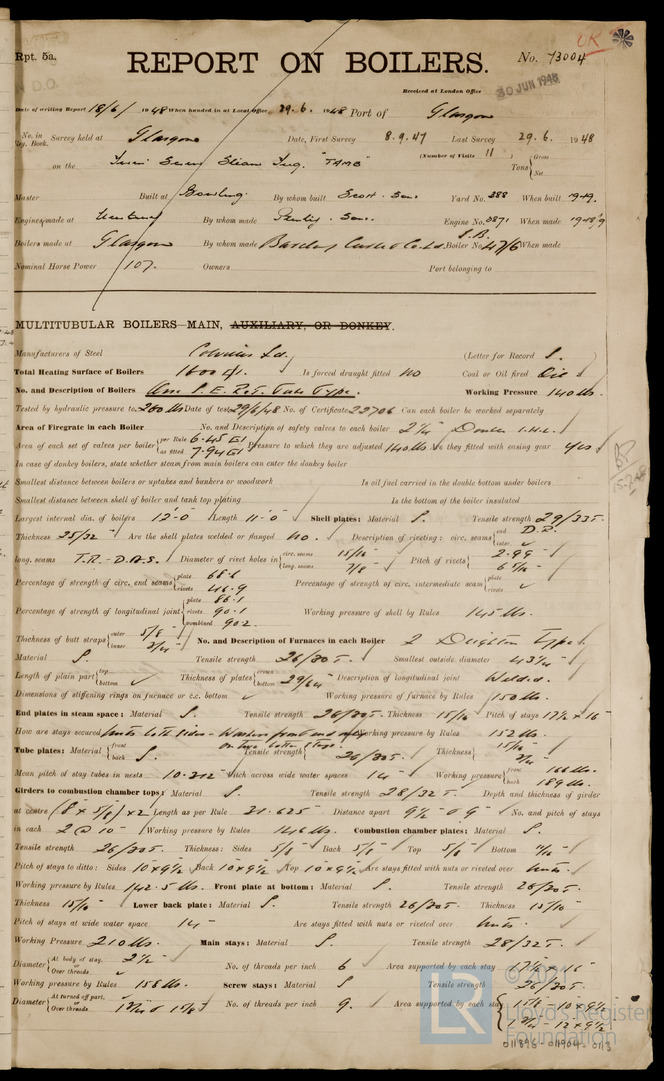 Rpt. 5a.
REPORT ON BOILERS.
No. 73004
OR
Received at London Office
30 JUN 1948
Date of writing Report 18/6/ 1948 When handed in at Local Office 29.6. 1948 Port of Glasgow
No. in Reg. Book. Survey held at Glasgow Date, First Survey 8.9.47 Last Survey 29.6. 1948
(Number of Visits 11)
on the Twin Screw Steam Tug. "TAMO" Tons { Gross Net
Master Built at Bowling By whom built Scott & Sons Yard No. 388 When built 1949.
Engines made at By whom made Engine No. 3871 When made 1948/9
Boilers made at Glasgow By whom made Barclay Curle & Co. Ld. Boiler No. When made
Nominal Horse Power 107. Owners Port belonging to
MULTITUBULAR BOILERS MAIN, AUXILIARY, OR DONKEY.
Manufacturers of Steel Colvilles Ld. (Letter for Record S.
Total Heating Surface of Boilers Is forced draught fitted NO Coal or Oil fired Oil
No. and Description of Boilers One S.E. Ret. Tube Type. Working Pressure 140 lbs.
Tested by hydraulic pressure to 260 lbs Date of test 29/6/48 No. of Certificate 22706 Can each boiler be worked separately
Area of Firegrate in each Boiler No. and Description of safety valves to each boiler
Area of each set of valves per boiler { per Rule 6.45 as fitted 7.94 Pressure to which they are adjusted 140 lbs Are they fitted with easing gear yes
In case of donkey boilers, state whether steam from main boilers can enter the donkey boiler
Smallest distance between boilers or uptakes and bunkers or woodwork Is oil fuel carried in the double bottom under boilers
Smallest distance between shell of boiler and tank top plating Is the bottom of the boiler insulated
Largest internal dia. of boilers 12'-0 Length 11'-0 Shell plates: Material S. Tensile strength 29/33T.
Thickness 25/32 Are the shell plates welded or flanged NO. Description of riveting: circ. seams { end D.R. inter.
long. seams T.R.-D.B.S. Diameter of rivet holes in { circ. seams 15/16 long. seams 7/8 Pitch of rivets { 2.99
Percentage of strength of circ. end seams { plate 68.6 rivets 46.9 Percentage of strength of circ. intermediate seam { plate rivets
Percentage of strength of longitudinal joint { plate 86.1 rivets 90.1 combined 90.2 Working pressure of shell by Rules 145 lbs.
Thickness of butt straps { outer 5/8 inner 3/4 No. and Description of Furnaces in each Boiler 2 Deighton Type
Material S. Tensile strength 26/30T. Smallest outside diameter 43 1/4
Length of plain part { top bottom Thickness of plates { crown bottom 29/64 Description of longitudinal joint Welded.
Dimensions of stiffening rings on furnace or c.c. bottom Working pressure of furnace by Rules 150 lbs.
End plates in steam space: Material S. Tensile strength 26/30T. Thickness 15/16 Pitch of stays 17 1/2 x 16
How are stays secured Nuts both sides - Washers front end only Working pressure by Rules 152 lbs.
on two bottom stays.
Tube plates: Material { front back S. Tensile strength 26/30T. Thickness { 15/16 3/4
Mean pitch of stay tubes in nests 10.312 Pitch across wide water spaces 14 Working pressure { front 166 lbs. back 189 lbs.
Girders to combustion chamber tops: Material S. Tensile strength 28/32T. Depth and thickness of girder
at centre (8 x 5/8) x2 Length as per Rule 31.625 Distance apart No. and pitch of stays
in each 2 @ 10 Working pressure by Rules 146 lbs. Combustion chamber plates: Material S.
Tensile strength 26/30T. Thickness: Sides 5/8 Back 5/8 Top 5/8 Bottom 11/16
Pitch of stays to ditto: Sides 10 x 9 1/2 Back 10 x 9 1/2 Top 10 x 9 1/2 Are stays fitted with nuts or riveted over Nuts.
Working pressure by Rules 142.5 lbs. Front plate at bottom: Material S. Tensile strength 26/30T.
Thickness 15/16 Lower back plate: Material S. Tensile strength 26/30T. Thickness 15/16
Pitch of stays at wide water space 14 Are stays fitted with nuts or riveted over Nuts.
Working Pressure 210 lbs. Main stays: Material S. Tensile strength 28/32T.
Diameter { At body of stay, or Over threads 2 1/2 No. of threads per inch 6 Area supported by each stay 17 1/2 x 16
Working pressure by Rules 156 lbs. Screw stays: Material S. Tensile strength 26/30T.
Diameter { At turned off part, or Over threads No. of threads per inch 9. Area supported by each stay { 1 5/8 - 10 x 9 1/2
1 3/4 - 12 x 9 1/2
LR
© 2021
Lloyd's Register
Foundation
011896-011904-0113